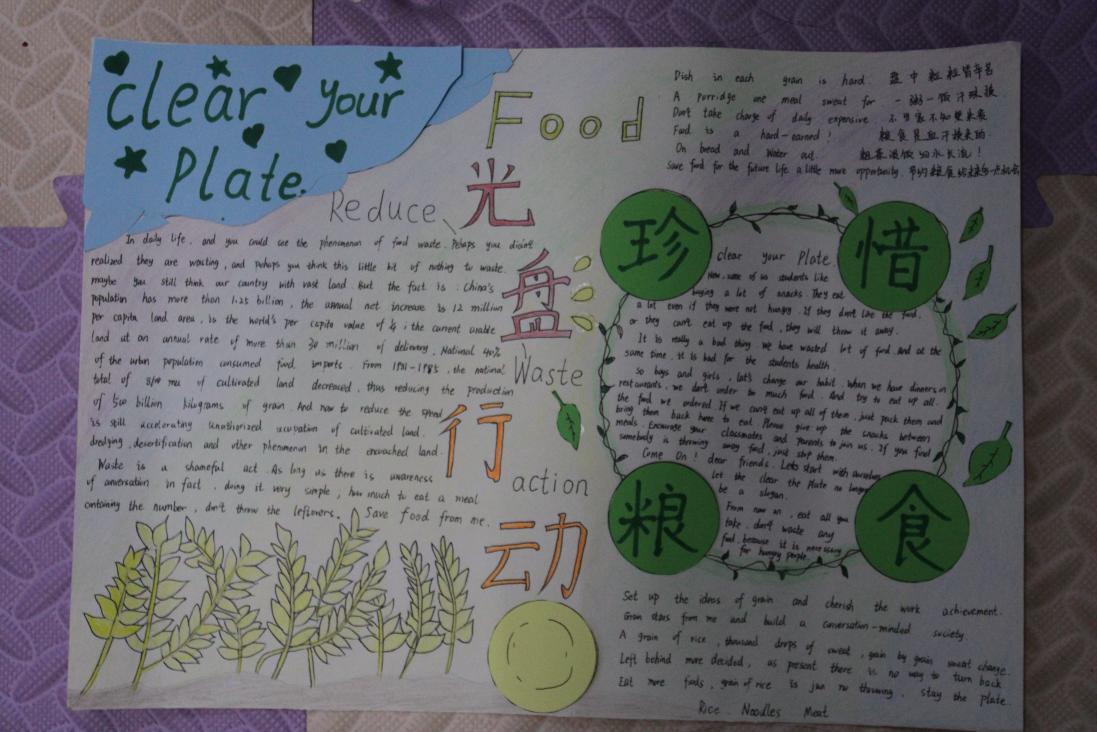 clear your
Plate.
Food
Reduce
光
盘
Waste
行
action
动
In daily life, and you could see the phenomenon of food waste. Perhaps you didn't
realized they are wasting, and pehaps you think this little bit of nothing to waste.
maybe you still think our country with vast land. But the fact is: China's
population has more than 1.25 billion, the annual net increase is 12 million
per capita land area, is the world's per capita value of the current usable
land at an annual rate of more than 30 million of delivery, National 40%
of the urban population consumed food imports. From 1981-1985, the national
total of mu of cultivated land decreased, thus reducing the production
of 500 billion kilograms of grain. And now to reduce the speed
is still accelerating Unauthorized occupation of cultivated land.
dredging, desertification and other phenomenon in the encroached land.
Waste is a shameful act. As long as there is awareness
of in fact, doing it very simple, how much to eat a meal
ontaining the number, don't throw the leftovers. Save food from me.
Dish in each grain is hard 盘中粒粒皆辛苦
A porridge one meal sweat for 一粥一饭汗珠换
Don't take charge of daily expensive 不当家不知柴米贵
Food is a hard-earned! 粮食是血汗换来的
On bread and Water out. 粗茶淡饭细水长流!
Save food for the future life a little more opportunity. 节约粮食给
珍
惜
粮
食
clear your Plate.
Now, some of us students like
buying a lot of snacks. They eat
a lot even if they were not hungry. If they don't like the food,
or they can't eat up the food, they will throw it away.
It is really a bad thing. We have wasted lot of food. And at the
same time, it is bad for the students health.
So boys and girls, let's change our habit. When we have dinners in
restaurants, we don't order too much food. And try to eat up all
the food we ordered. If we can't eat up all of them, just pack them and
bring them back home to eat. Please give up the snacks between
meals. Encourage your classmates and parents to join us. If you find
somebody is throwing away food, just stop them.
Come On! dear friends. Let's start with ourselves
let the clear the Plate no longer
be a slogan.
From now on, eat all you
take, don't waste any
food, because it is necessary
for hungry people.
Set up the ideas of grain and cherish the work achievement.
Grain stars from me and build a conservation-minded society.
A grain of rice, thousand drops of sweat, grain by grain sweat change.
Left behind more decided, as present there is no way to turn back
Eat more foods, grain of rice is jun no throwing, stay the plate.
Rice Noodles Meat